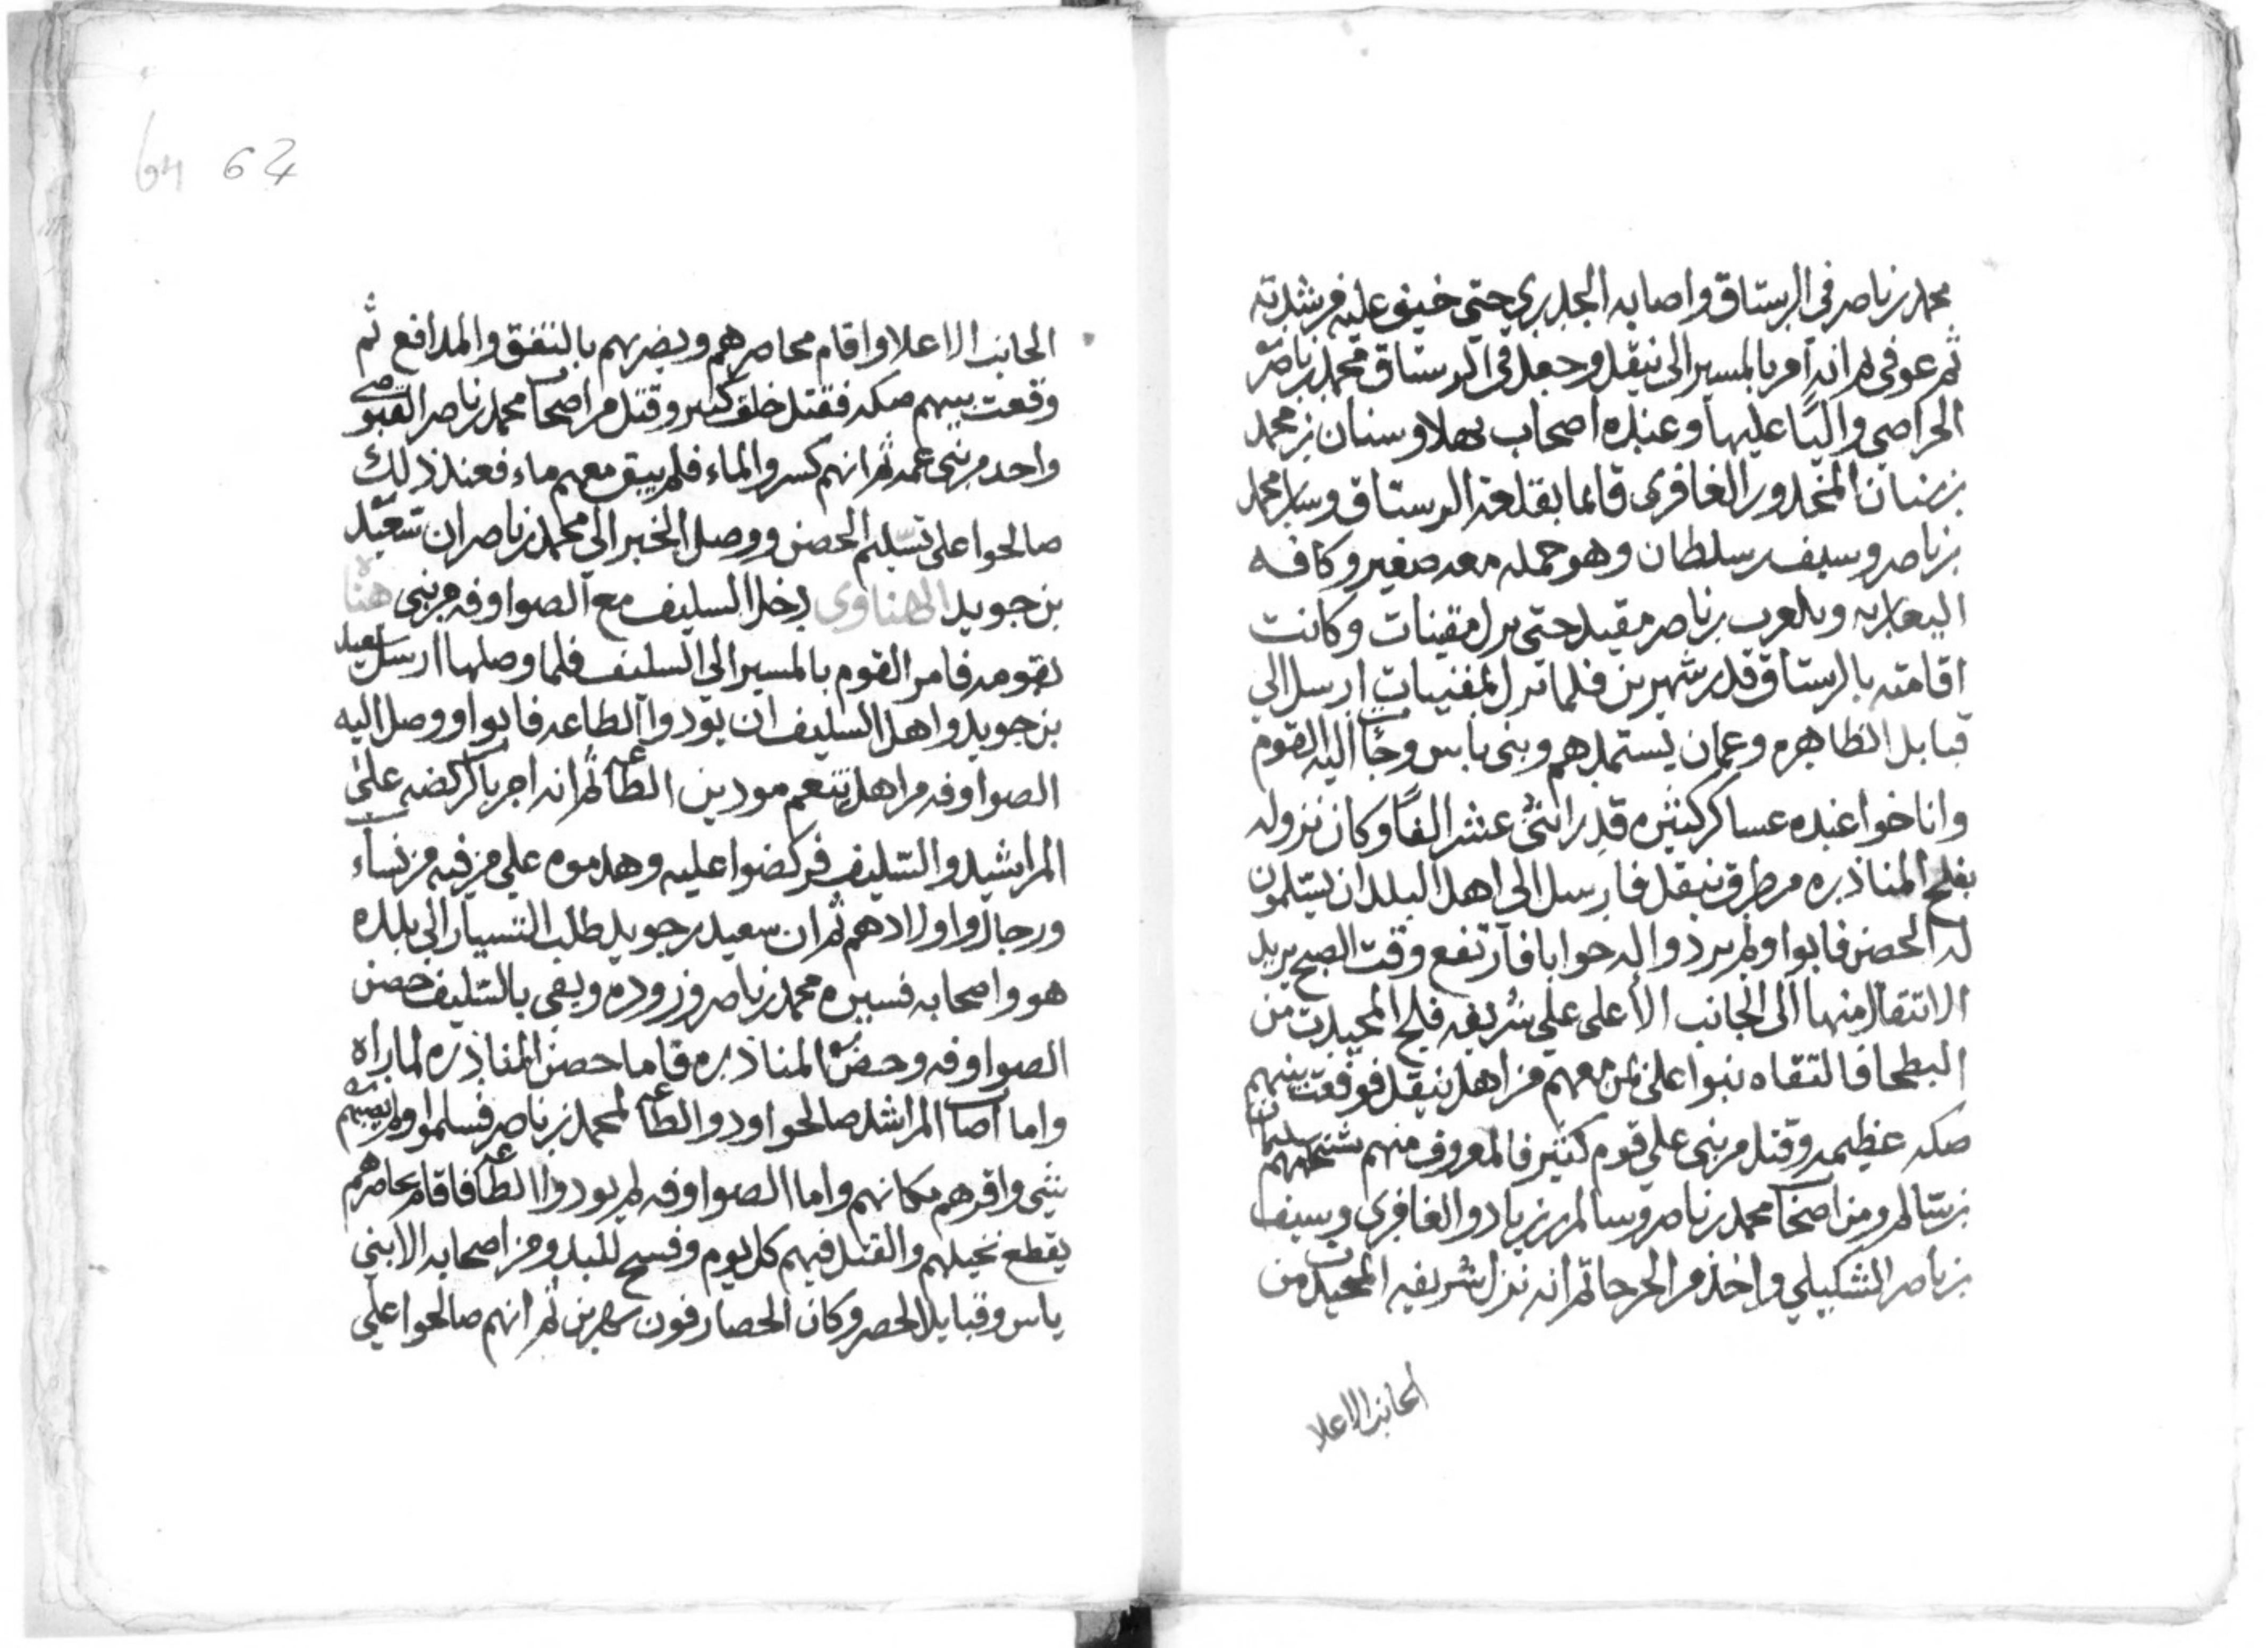 محمد بن ناصر في الرستاق واصابه الجدري حتى خيف عليه من شدته
ثم عوفي ثم انه امر بالمسير الى ينقل وجعل في الرستاق محمد بن ناصر
الحراصي واليًا عليها وعنده اصحاب بهلا وسنان بن محمد
بن سنان المحذور الغافري قائما بقلعة الرستاق وسار محمد
بن ناصر وسيف بن سلطان وهو حمله معه صغير وكافه
اليعاربه وبلعرب بن ناصر مقيد حتى نزل مقنيات وكانت
اقامته بالرستاق قدر شهرين فلما نزل المقنيات ارسل الى
قبايل الظاهره وعمان يستمدهم وبني ياس وجاء اليه القوم
واناخوا عنده عساكر كثيره قدر اثني عشر الفًا وكان نزوله
بفلج المناذره من طرق ينقل فارسل الى اهل البلد ان يسلمون
له الحصن فابوا ولم يردوا له جوابا فارتفع وقت الصبح يريد
الانتقال منها الى الجانب الأعلى على شريفه فلج المحيدث من
البطحا فالتقاه بنوا علي بمن معهم من اهل ينقل فوقعت بينهم
صكه عظيمه وقتل من بني علي قوم كثير فالمعروف منهم شيخهم سليمان
بن سالم ومن اصحاب محمد بن ناصر سالم بن زياد والغافري وسيف
بن ناصر الشكيلي واخذ من الجرحا ثم انه نزل شريفه المحيدث من
الجانب الاعلا
64 62
الجانب الاعلا واقام محاصرهم ويضربهم بالتفق والمدافع ثم
وقعت بينهم صكه فقتل خلق كثير وقتل من اصحاب محمد بن ناصر
واحد من بني عمه ثم انهم كسروا الماء فلم يبق معهم ماء فعند ذلك
صالحوا على تسليم الحصن ووصل الخبر الى محمد بن ناصر ان سعيد
بن جويد الهناوى دخل السليف مع الصواوفه من بني هناه
بقومه فامر القوم بالمسير الى السليف فلما وصلها ارسل لسعيد
بن جويد واهل السليف ان يؤدوا الطاعه فابوا ووصل اليه
الصواوفه من اهل تنعم مودين الطاعه ثم انه امر بالركضه على
المراشيد والسليف فركضوا عليه وهدموه على من فيه من نساء
ورجال واولادهم ثم ان سعيد بن جويد طلب التسيار الى بلده
هو واصحابه فسيره محمد بن ناصر وزوده وبقى بالسليف حصن
الصواوفه وحصن المناذره فاما حصن المناذره لما راه
واما اصحاب المراشد صالحوا ودوا الطاعه لمحمد بن ناصر فسلموا ولم يصبهم
شي واقرهم مكانهم واما الصواوفه لم يودوا الطاعه فاقام يحاصرهم
يقطع نخيلهم والقتل فيهم كل يوم وفسح للبدو من اصحابه الا بني
ياس وقبايل الحضر وكان الحصار فوق شهرين ثم انهم صالحوا على